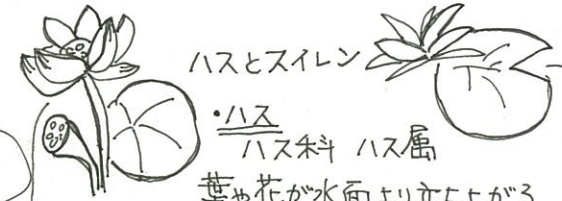 ハスとスイレン
・ハス
ハス科 ハス属
葉や花が水面より立ち上がる